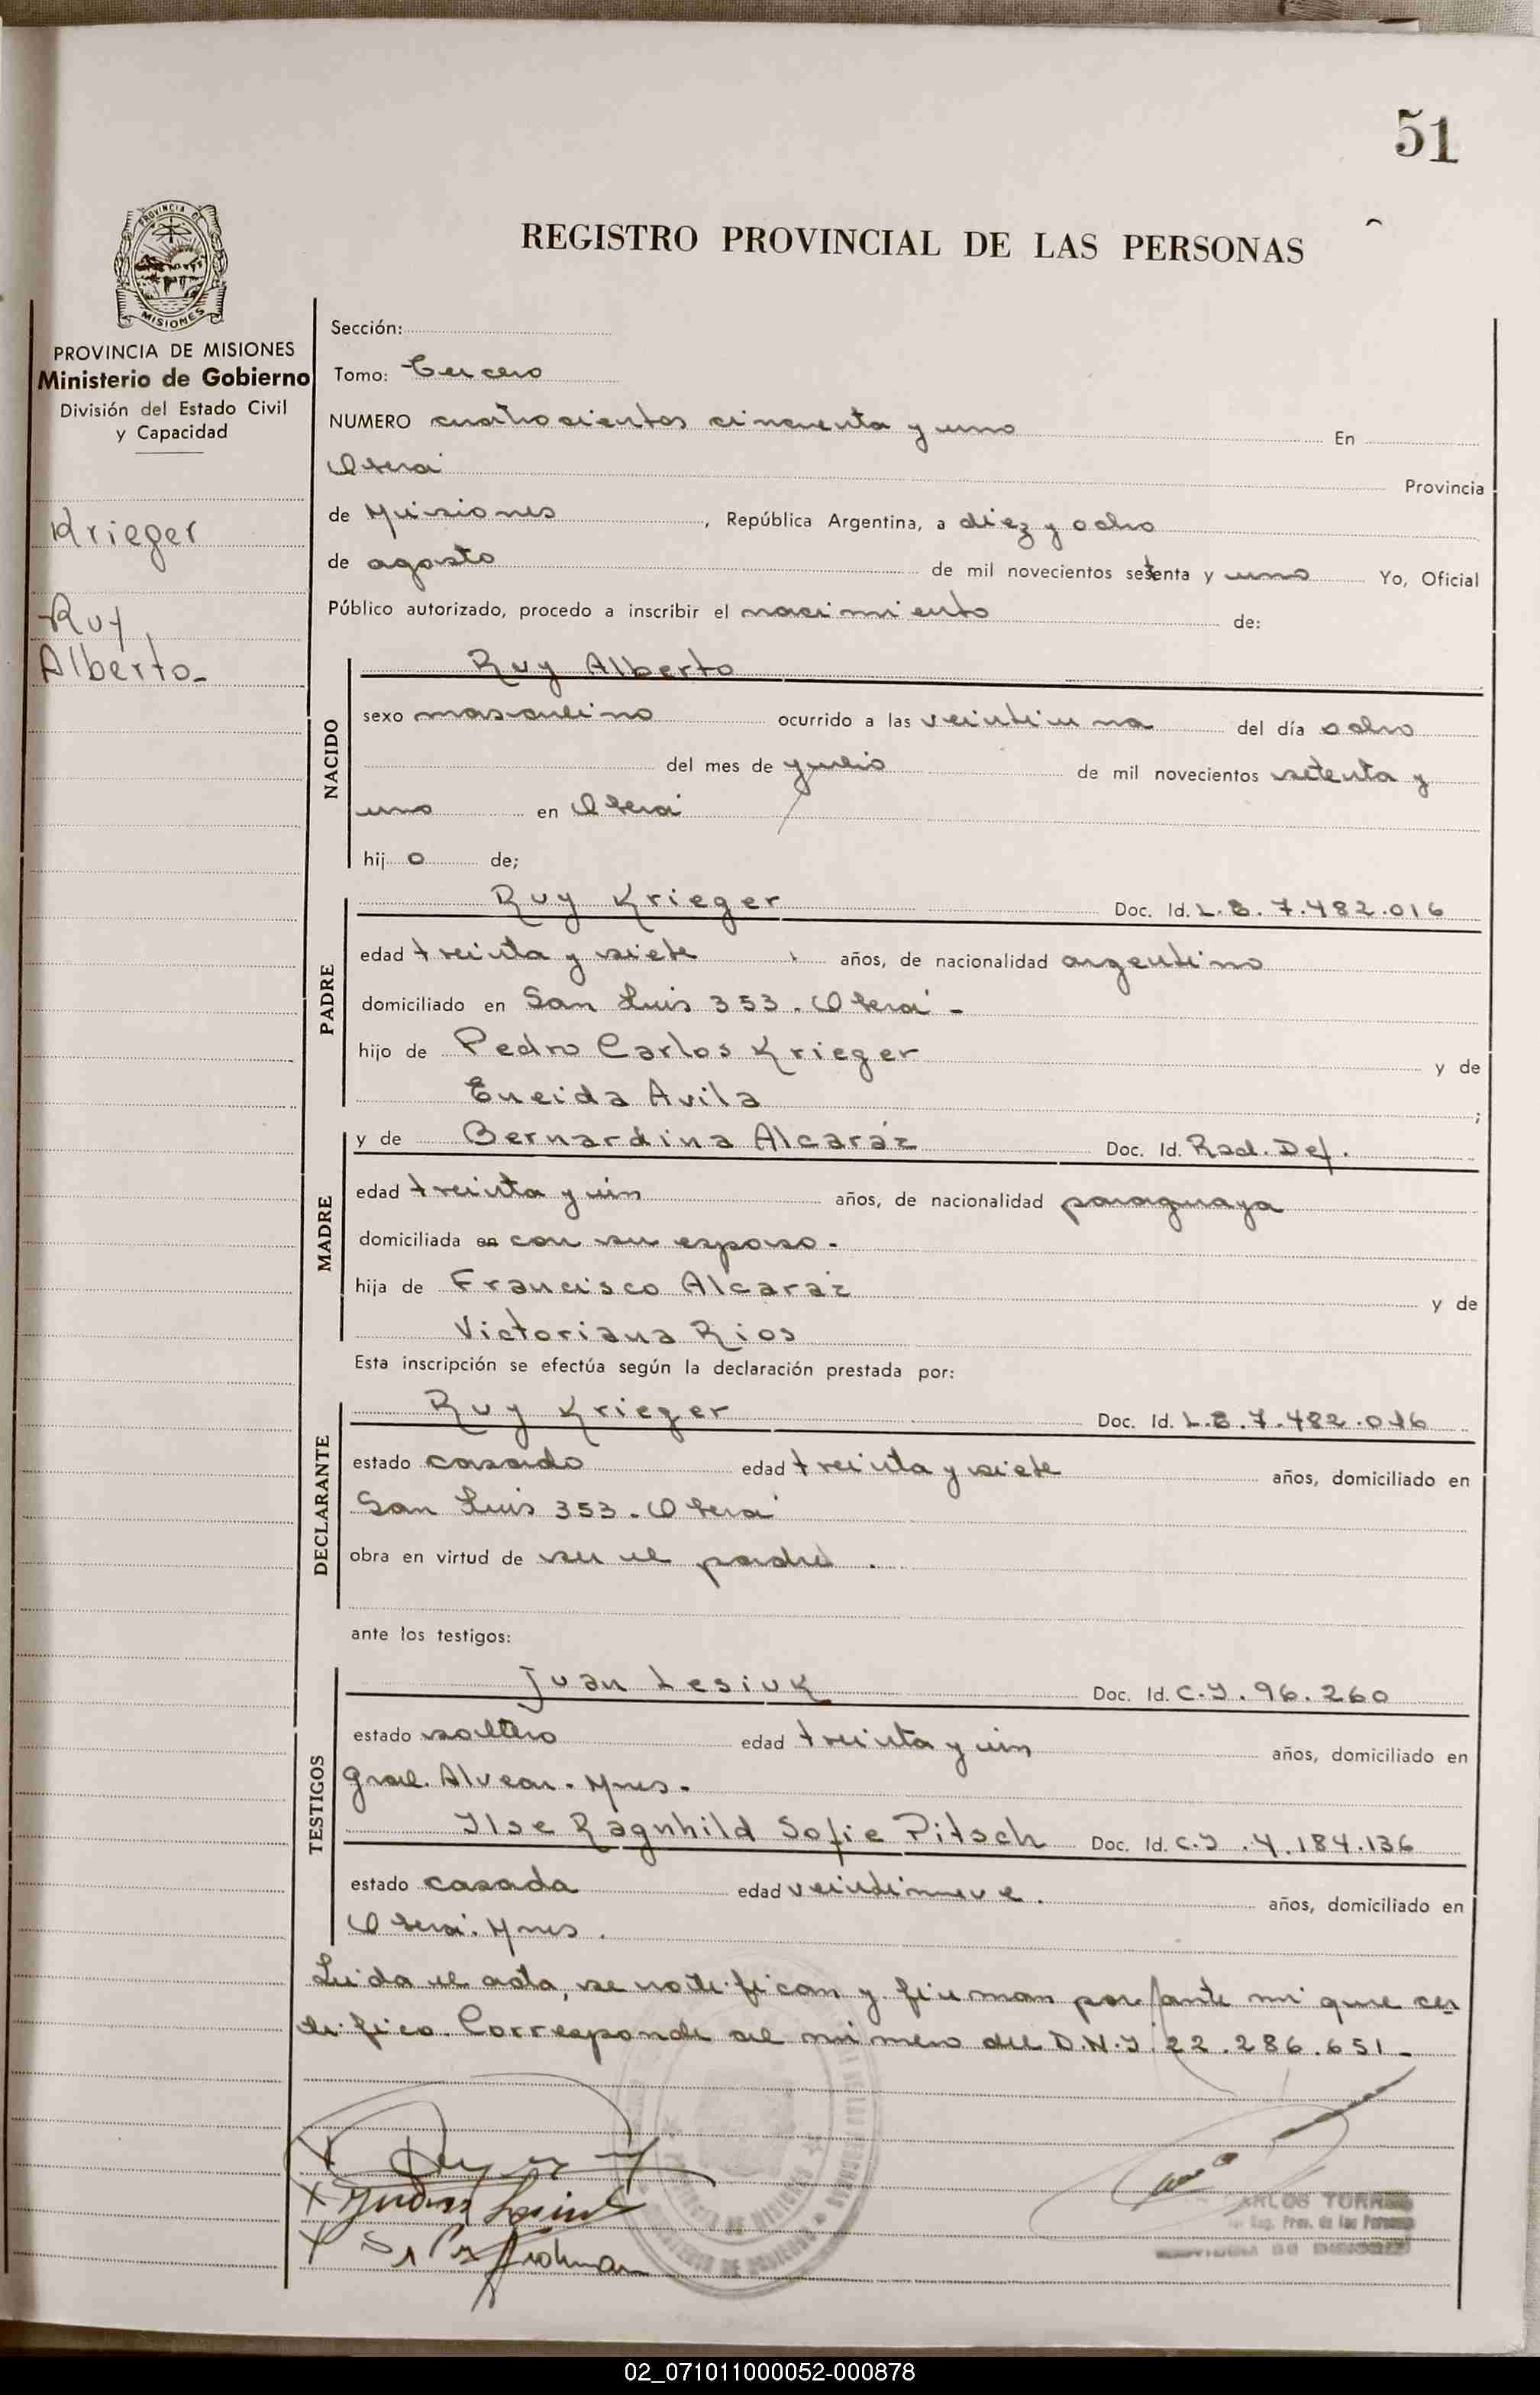 51
REGISTRO PROVINCIAL DE LAS PERSONAS
PROVINCIA DE
MISIONES
PROVINCIA DE MISIONES
Ministerio de Gobierno
División del Estado Civil
y Capacidad
Krieger
Ruy
Alberto-
Sección:
Tomo: Tercero
NUMERO cuatrocientos cincuenta y uno En
Oberá Provincia
de Misiones, República Argentina, a diez y ocho
de agosto de mil novecientos setenta y uno Yo, Oficial
Público autorizado, procedo a inscribir el nacimiento de:
NACIDO
Ruy Alberto
sexo masculino ocurrido a las veintiuna del día ocho
del mes de julio de mil novecientos setenta y
uno en Oberá
hijo de;
PADRE
Ruy Krieger Doc. Id. L.E. 7.482.016
edad treinta y siete años, de nacionalidad argentino
domiciliado en San Luis 353. Oberá -
hijo de Pedro Carlos Krieger y de
Eneida Avila ;
MADRE
y de Bernardina Alcaráz Doc. Id. Rad. Def.
edad treinta y un años, de nacionalidad paraguaya
domiciliada en con su esposo.
hija de Francisco Alcaráz y de
Victoriana Rios
Esta inscripción se efectúa según la declaración prestada por:
DECLARANTE
Ruy Krieger Doc. Id. L.E. 7.482.016
estado casado edad treinta y siete años, domiciliado en
San Luis 353. Oberá
obra en virtud de ser el padre.
ante los testigos:
TESTIGOS
Juan Lesiuk Doc. Id. C.I. 96.260
estado soltero edad treinta y un años, domiciliado en
Gral. Alvear. Mnes.
Ilse Ragnhild Sofie Pitsch Doc. Id. C.I. 4.184.136
estado casada edad veintinueve. años, domiciliado en
Oberá. Mnes.
Leida el acta, se notifican y firman por ante mi que cer
tifico. Corresponde al número del D.N.I. 22.286.651-
CARLOS TORRES
Reg. Prov. de las Personas
02_071011000052-000878